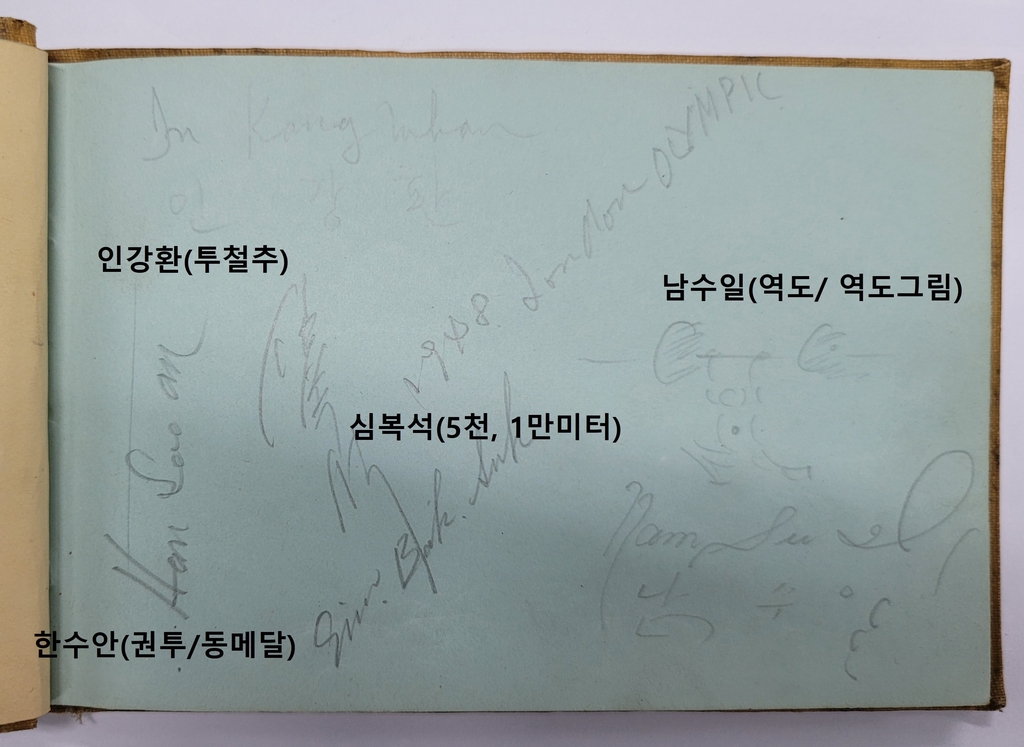 In Kang whan
인 강 환
인강환(투철추)
남수일(역도/ 역도그림)
1948. London OLYMPIC
심복석(5천, 1만미터)
Sim. Bok. Suk
Han Soo an
Nam Su il
남 수 일
한수안(권투/동메달)